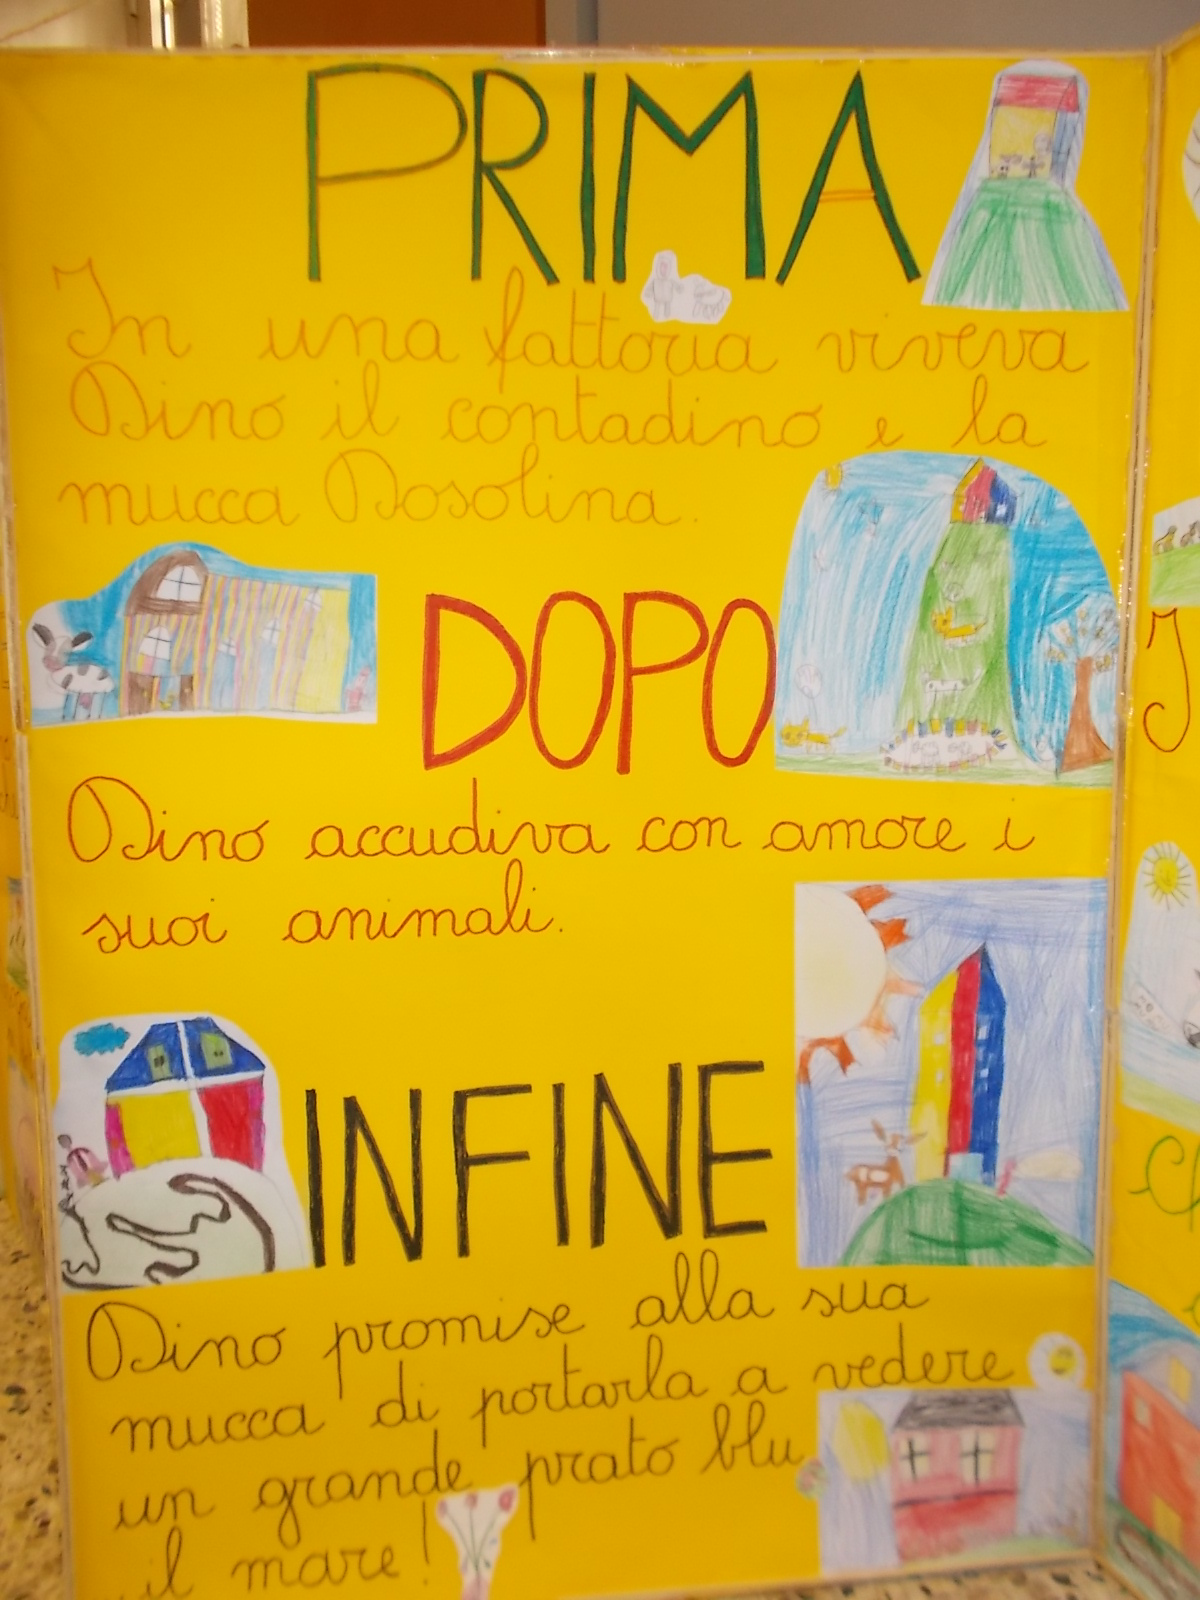 PRIMA
In una fattoria viveva
Dino il contadino e la
mucca Dosolina.
DOPO
Dino accudiva con amore i
suoi animali.
INFINE
Dino promise alla sua
mucca di portarla a vedere
un grande prato blu
il mare!